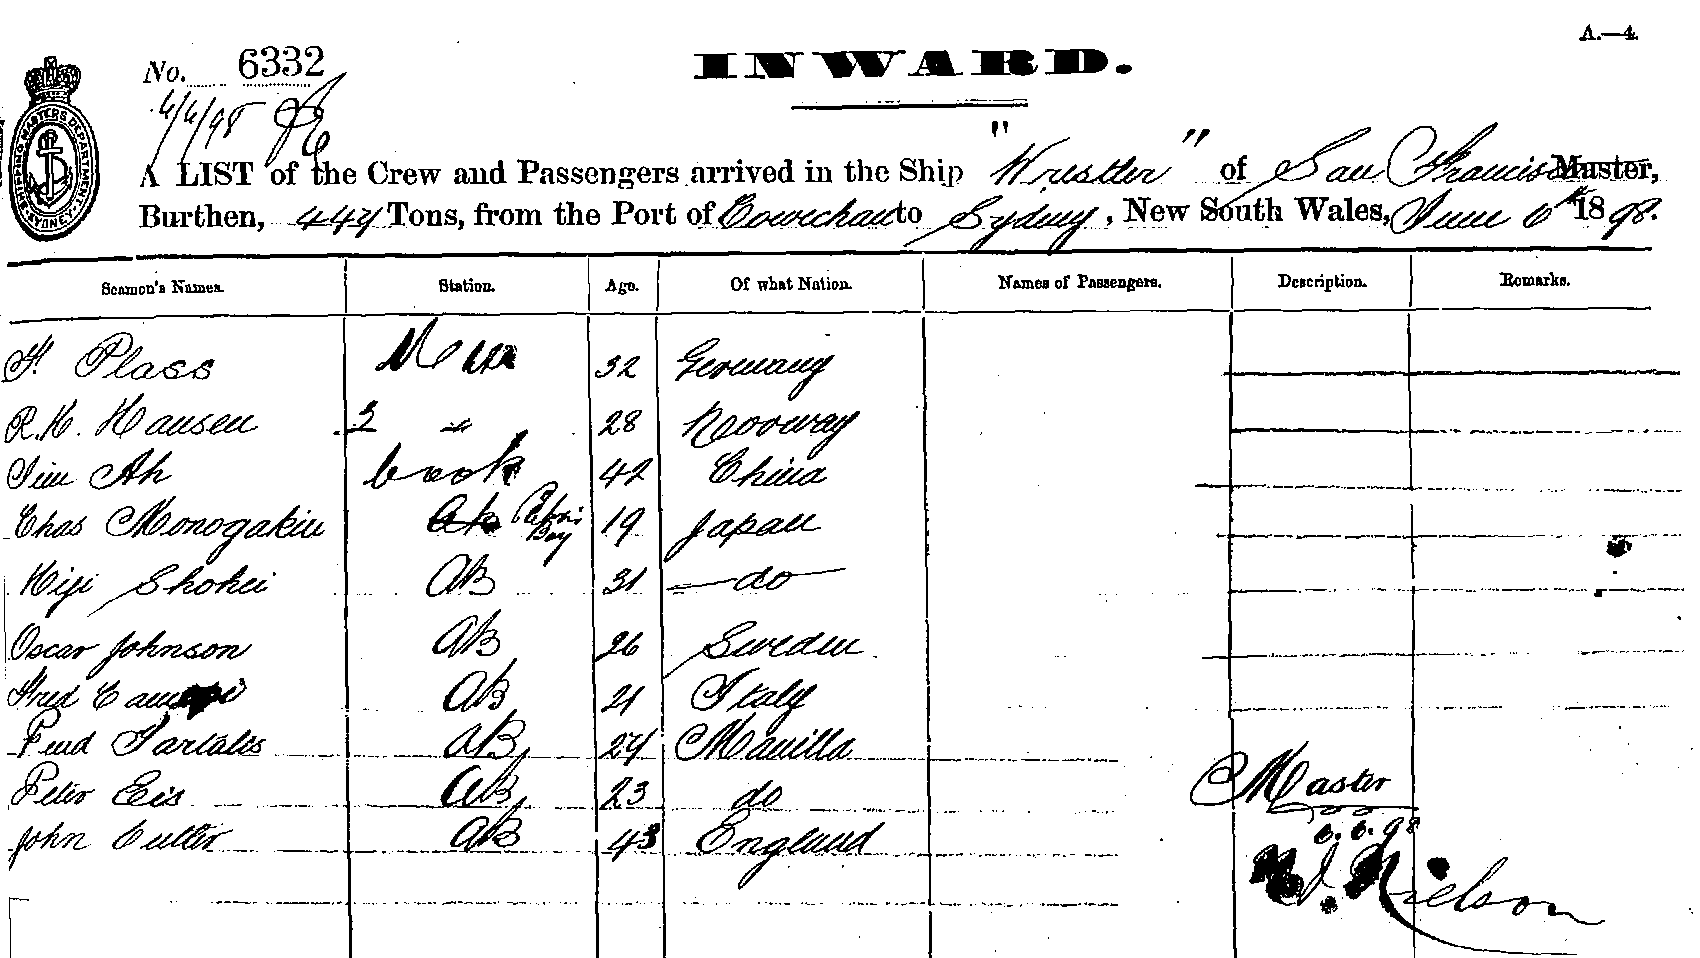 A.—4.
No. 6332
INWARD.
6/6/98
A LIST of the Crew and Passengers arrived in the Ship "Wrestler" of San Francisco Master,
Burthen, 447 Tons, from the Port of Cowichan to Sydney, New South Wales, June 6th 1898.
SHIPPING MASTERS DEPARTMENT SYDNEY
Seamen's Names. Station. Age. Of what Nation. Names of Passengers. Description. Remarks.
F. Plass Mate 32 Germany
R.H. Hansen 2 " 28 Norway
Jim Ah Cook 42 China
Chas Monogakiu AB Cabin Boy 19 Japan
Kiji Shokei AB 31 do
Oscar Johnson AB 26 Sweden
Fred AB 21 Italy
Ferd AB 24 Manilla
Peter Eis AB 23 do
John Cutter AB 43 England
Master
6.6.98
Nielson